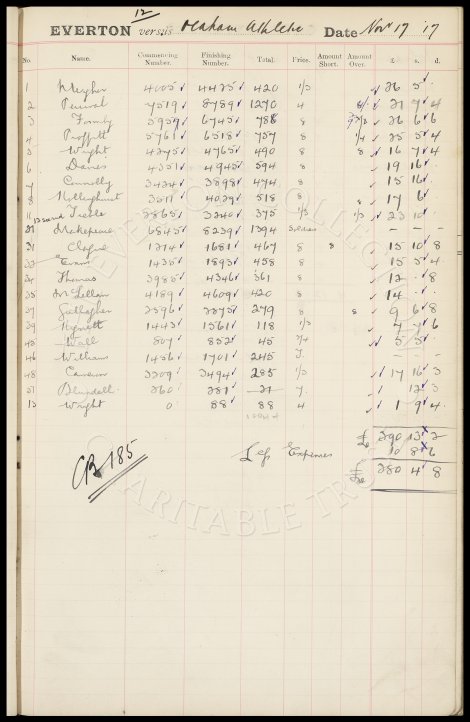 12
EVERTON versus Oldham Athletic Date Nov 17 '17
No. Name. Commencing Number. Finishing Number. Total. Price. Amount Short. Amount Over. £ s. d.
1 Meyher 4005 4425 420 1/3 26 5
2 Percival 7519 8789 1270 4 21 7 4
3 5959 6745 786 8 26 6 6
4 Proffitt 5761 6518 757 8 1/4 25 5 4
5 Wright 4275 4765 490 8 8 16 7 4
6 Davies 4351 4945 594 8 19 16
7 Connolly 3424 3898 474 8 15 16
8 3511 4029 518 8 17 6
2865 3240 375 1/3 23 10
Makepeace 6845 8239 1394
31 Clague 1214 1681 467 8 8 15 10 8
Evans 1435 1893 458 8 15 5 4
34 Thomas 3985 4346 361 8 12 8
35 McLellan 4189 4609 420 8 14
37 Gallagher 2596 2875 279 8 8 9 6 8
39 Hignett 1443 1561 118 1/3 7 7 6
45 Wall 807 852 45 2/4 5 5
46 Witham 1456 1701 245
48 Cameron 3209 3494 285 1/3 17 16 3
51 Blundell 260 281 21
13 Wright 0 88 88 4 1 9 4
£ 290 13 2
Less Expenses 10 8 6
£ 280 4 8
CB 185
EVERTON COLLECTION
CHARITABLE TRUST